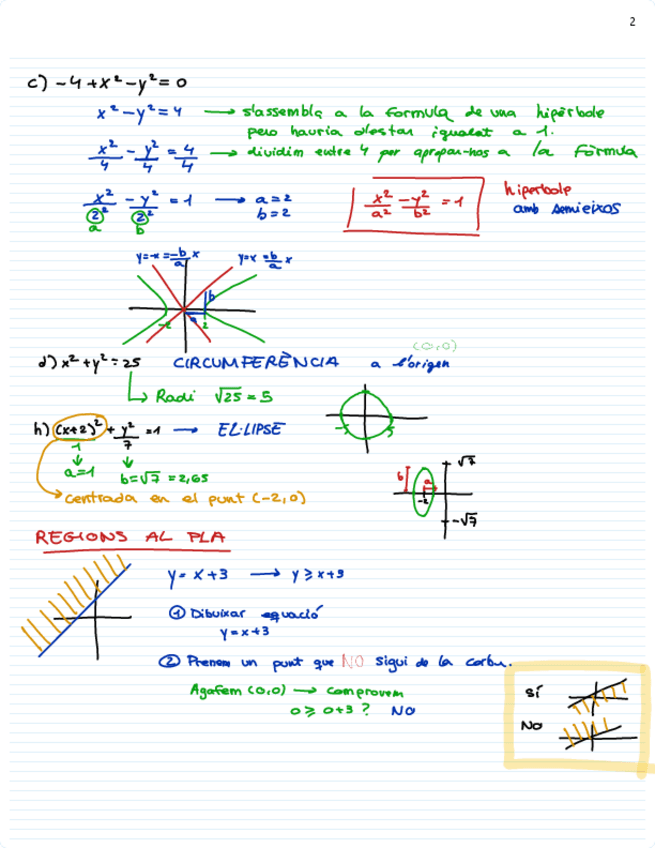 2
c) -4+x²-y²=0
x²-y²=4 → s'assembla a la formula de una hipèrbole
pero hauria d'estar igualat a 1.
x²/4 - y²/4 = 4/4 → dividim entre 4 per apropar-nos a la fórmula
x²/2² - y²/2² = 1 → a=2
b=2
a b
x²/a² - y²/b² = 1
hiperbole
amb semieixos
y=-x=-b/a x
y=x=b/a x
b
a
-2 2
(0,0)
d) x²+y²=25 CIRCUMFERÈNCIA a l'origen
↳ Radi √25=5
-5 5
h) (x+2)²/1 + y²/7 =1 → EL·LIPSE
a=1 b=√7=2,65
→ centrada en el punt (-2,0)
√7
b a
-2
-√7
REGIONS AL PLA
y=x+3 → y≥x+3
① Dibuixar equació
y=x+3
② Prenem un punt que NO sigui de la corba.
Agafem (0,0) → comprovem
0≥0+3? NO
SÍ
NO